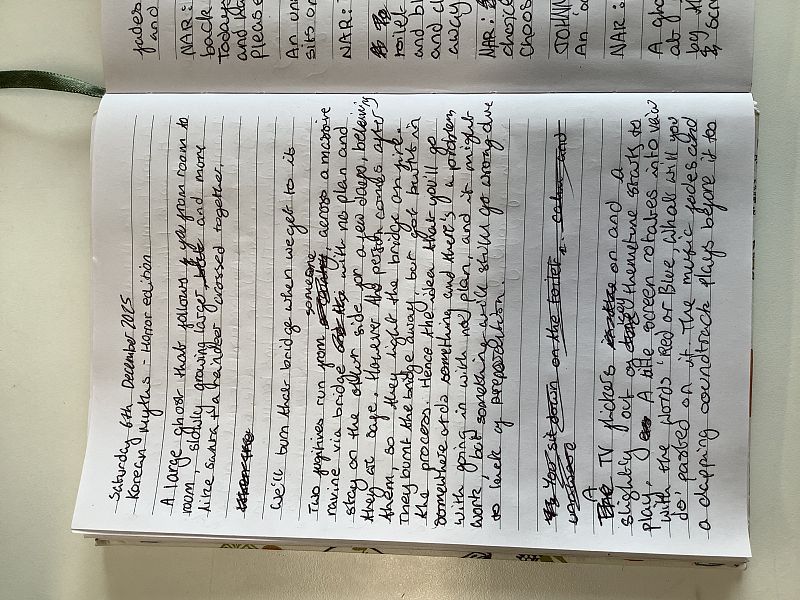 jades
and
NAR:
back
Today
and
please
An un
sits or
NAR:
toilet
and bl
and cl
away
NAR:
choice
Choos
JOHNN
An
NAR:
A g
at
by th
scr
Saturday 6th December 2025
Korean Myths - Horror edition
A large ghost that follows you from room to
room slowly growing larger and more
like sunra it a handeer crossed together.
We'll burn that bridge when we get to it
Two fugitives run from someone, across a massive
ravine via bridge with no plan and
stay on the other side for a few days, believing
they at safe, However the person comes after
them, so they light the bridge on fire.
They burnt the bridge away, but got burnt in
the process. Hence the idea that you'll go
somewhere or do something and there's a problem
with going in with no plan, and it might
work, but something will still go wrong due
to lack of preperation.
You sit down on the toilet
A
TV flickers on and a
slightly out of key themetune starts to
play, A title screen rotates into view
with the words 'Red or Blue, What will you
do' pasted on it. The music fades and
a clapping soundtrack plays before it too